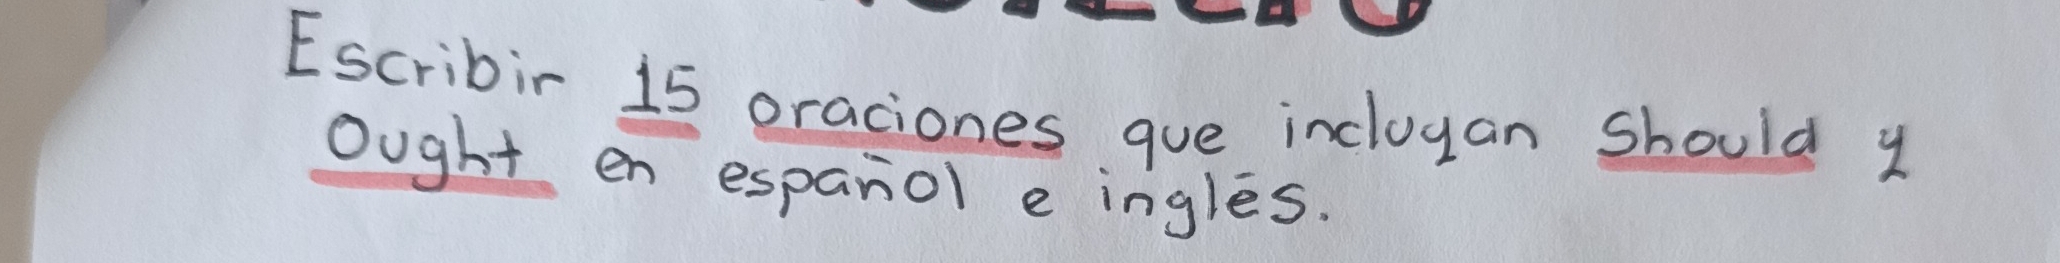 Escribir 15 oraciones que incluyan Should y
Ought en español e inglés.